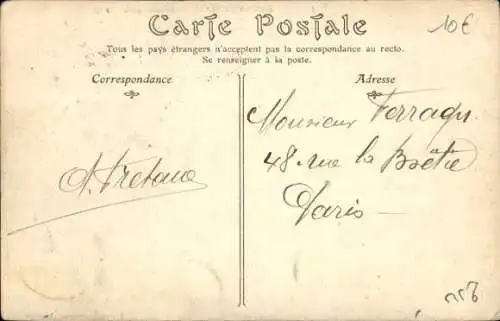 Carte Postale
10€
Tous les pays étrangers n'acceptent pas la correspondance au recto.
Se renseigner à la poste.
Correspondance
Adresse
Monsieur Ferragu
48 rue la Boëtie
Paris